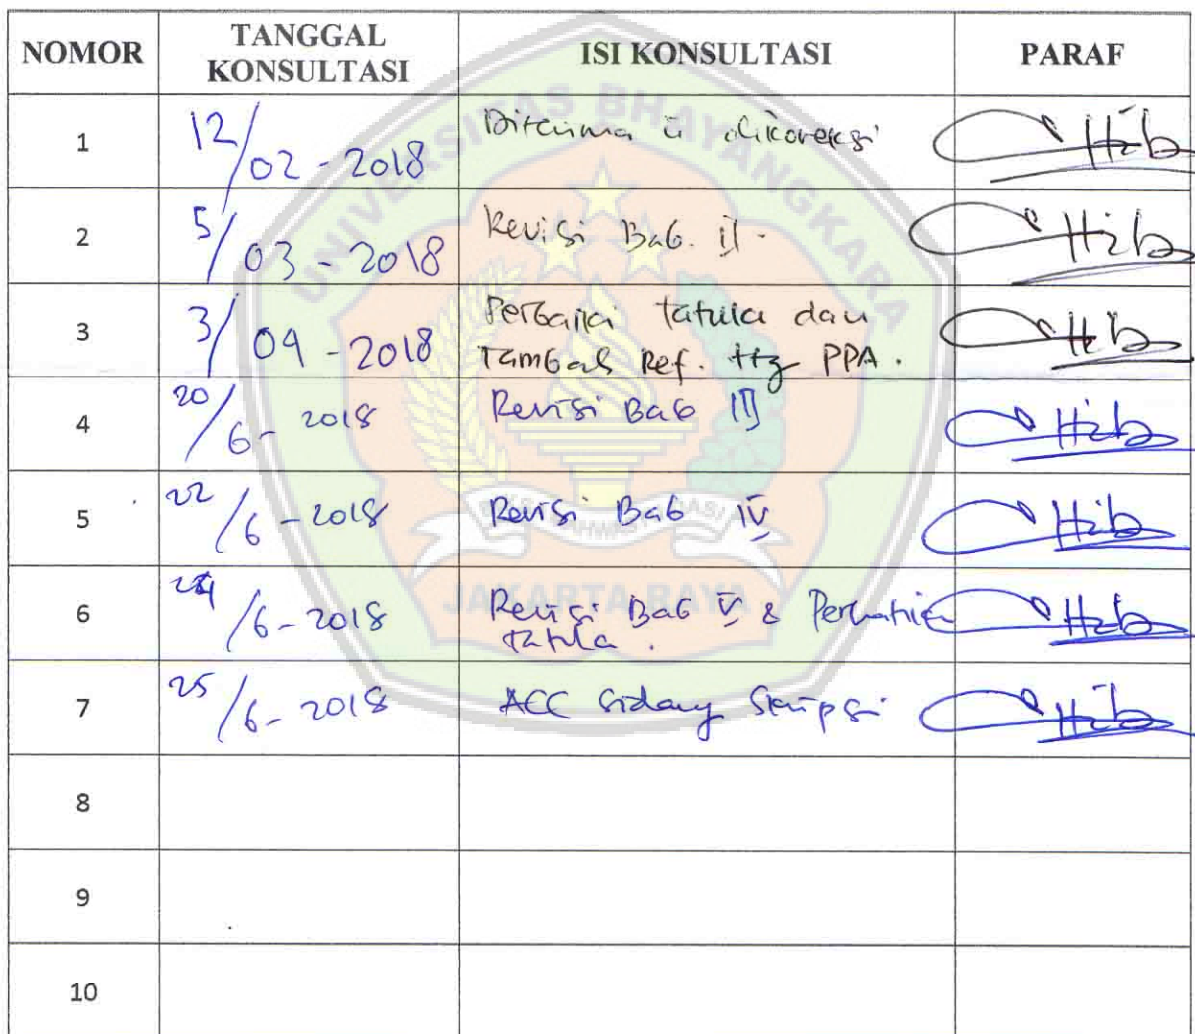 NOMOR TANGGAL KONSULTASI ISI KONSULTASI PARAF
1 12/02-2018 Diterima u dikoreksi
2 5/03-2018 Revisi Bab. II -
3 3/04-2018 Perbaiki tatula dan
Tambah Ref. ttg PPA.
4 20/6-2018 Revisi Bab III
5 22/6-2018 Revisi Bab IV
6 24/6-2018 Revisi Bab V & Perhatikan
tatula.
7 25/6-2018 ACC Sidang Skripsi
8
9
10
UNIVERSITAS BHAYANGKARA
JAKARTA RAYA